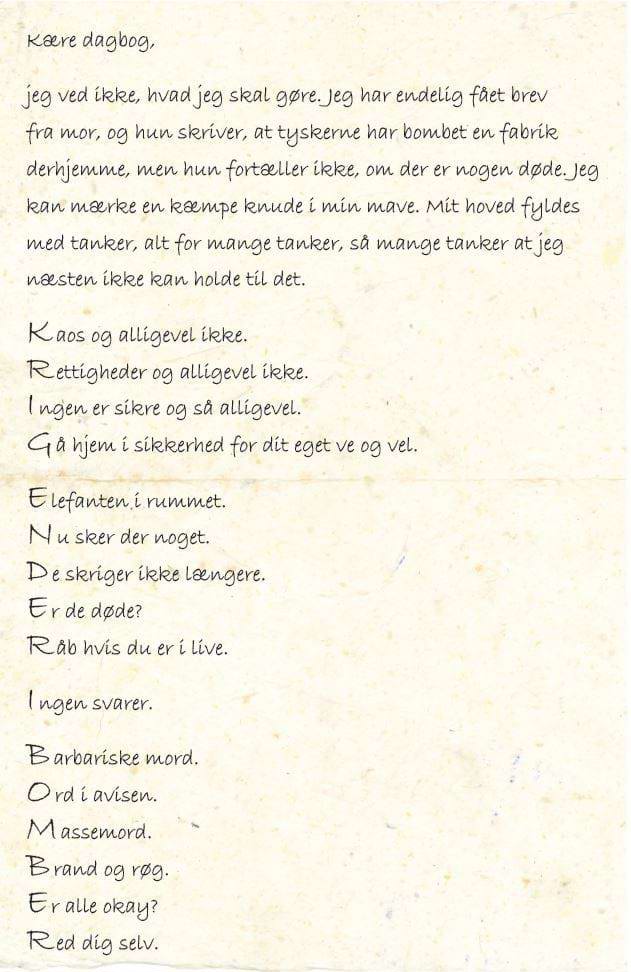 Kære dagbog,
jeg ved ikke, hvad jeg skal gøre. Jeg har endelig fået brev
fra mor, og hun skriver, at tyskerne har bombet en fabrik
derhjemme, men hun fortæller ikke, om der er nogen døde. Jeg
kan mærke en kæmpe knude i min mave. Mit hoved fyldes
med tanker, alt for mange tanker, så mange tanker at jeg
næsten ikke kan holde til det.
Kaos og alligevel ikke.
Rettigheder og alligevel ikke.
Ingen er sikre og så alligevel.
Gå hjem i sikkerhed for dit eget ve og vel.
Elefanten i rummet.
Nu sker der noget.
De skriger ikke længere.
Er de døde?
Råb hvis du er i live.
Ingen svarer.
Barbariske mord.
Ord i avisen.
Massemord.
Brand og røg.
Er alle okay?
Red dig selv.